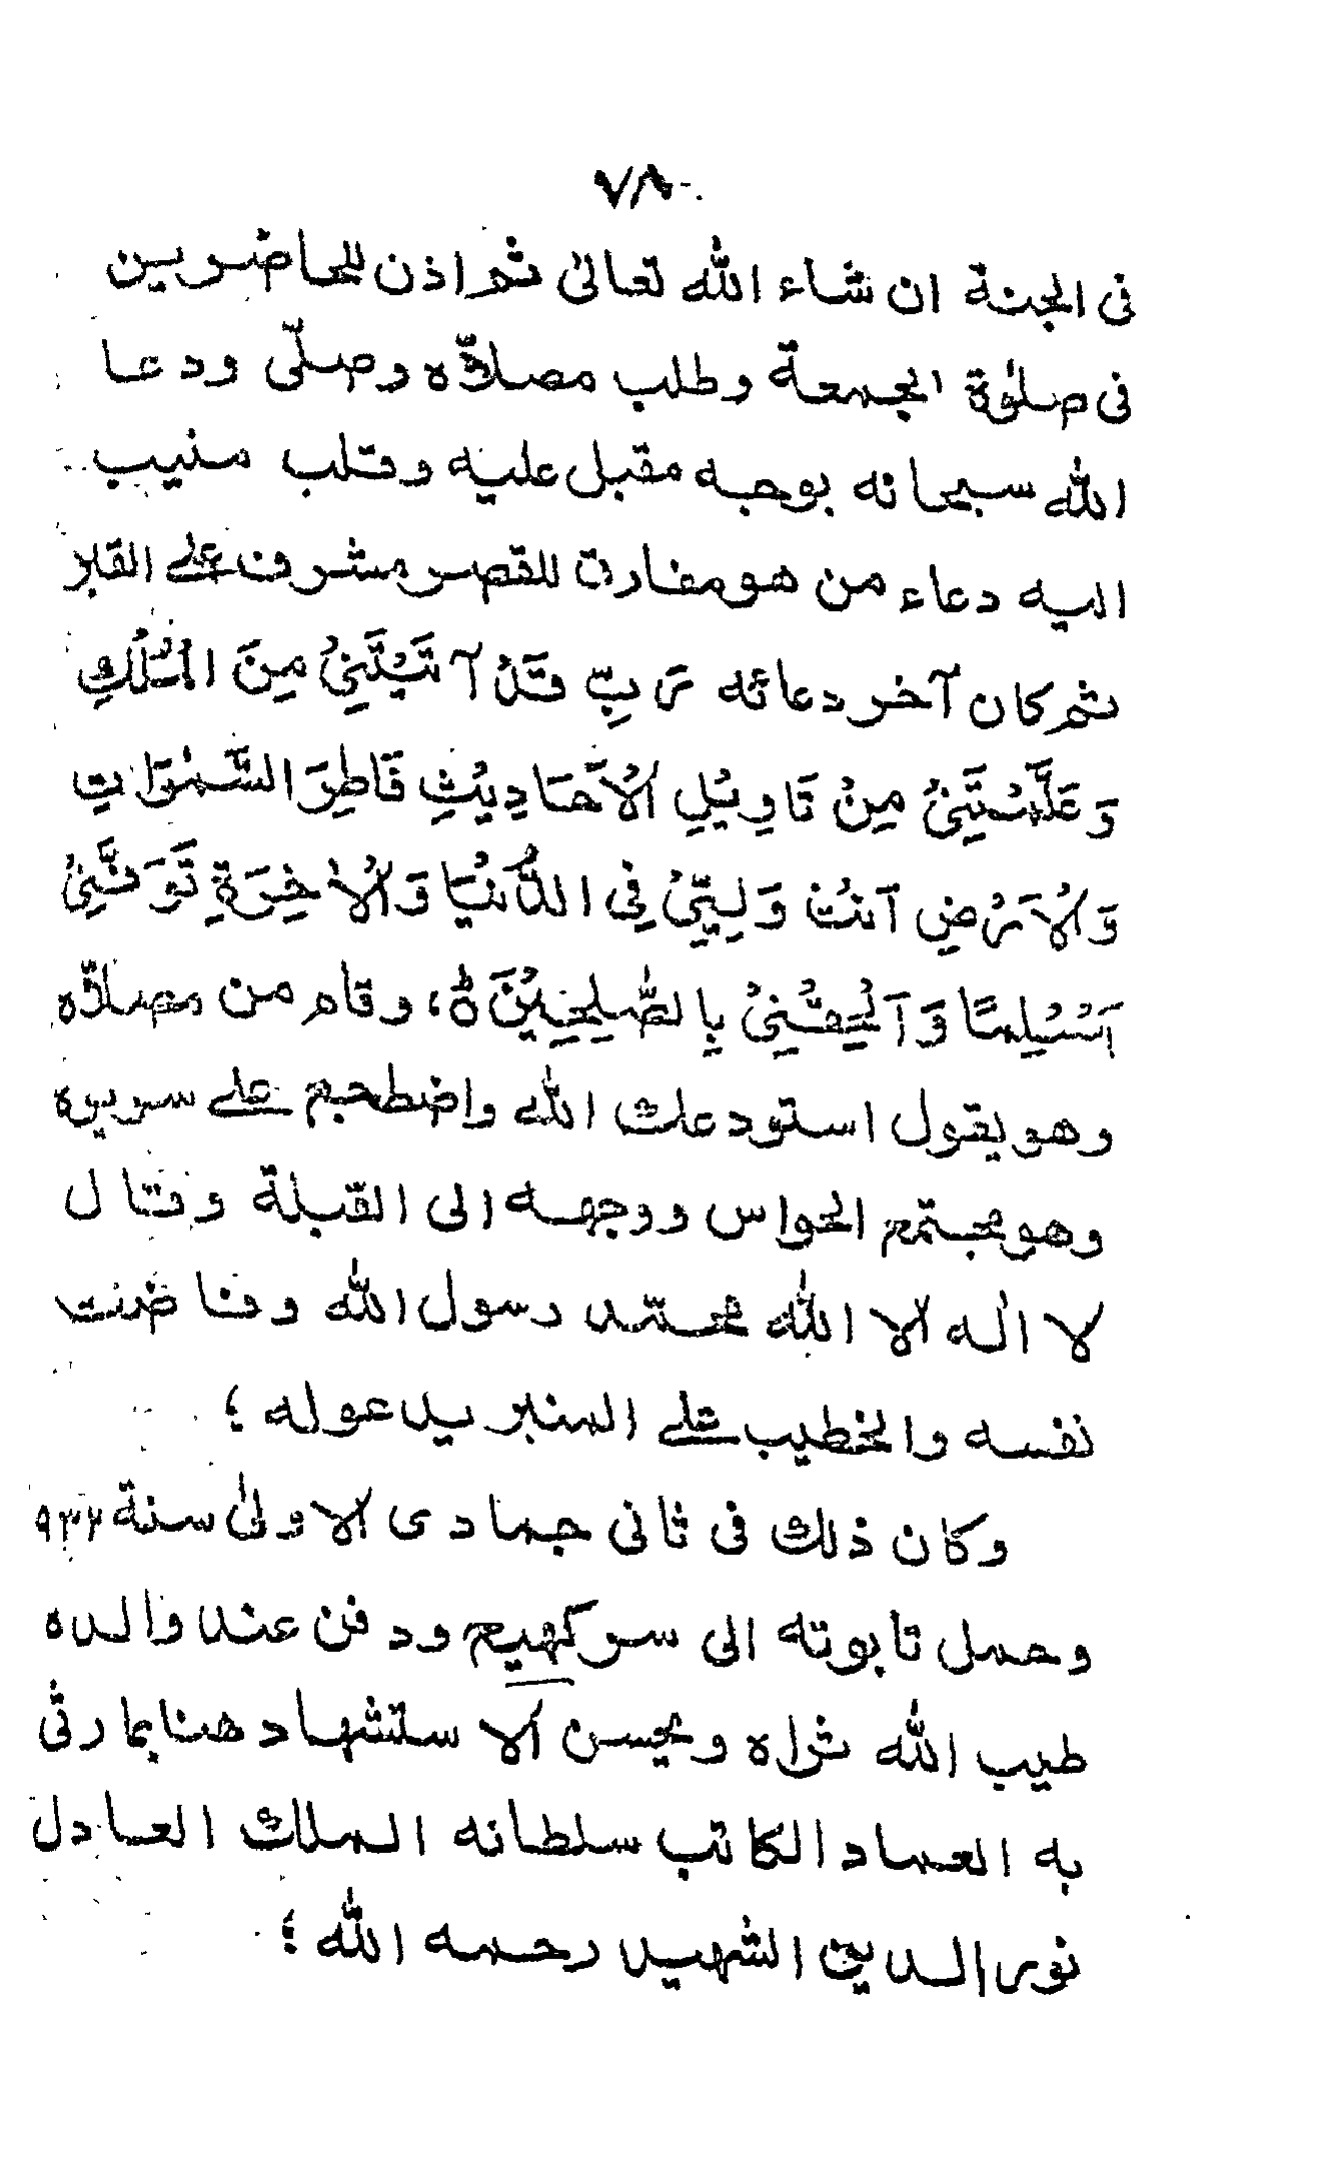 ٧٨
فى الجنة ان شاء الله تعالىٰ ثم اذن للحاضرين
فى صلوٰة الجمعة وطلب مصلاّه وصلّى ودعا
الله سبحانه بوجه مقبل عليه وقلب منيب
اليه دعاء من هو مفارق للقصر مشرف على القبر
ثم كان آخر دعائه رَبِّ قَدْ آتَيْتَنِيْ مِنَ الْمُلْكِ
وَعَلَّمْتَنِيْ مِنْ تَاوِيْلِ الْاَحَادِيْثِ فَاطِرَ السَّمٰوَاتِ
وَالْاَرْضِ اَنْتَ وَلِيِّيْ فِي الدُّنْيَا وَالْاٰخِرَةِ تَوَفَّنِيْ
مُسْلِمًا وَاَلْحِقْنِيْ بِالصّٰلِحِيْنَ ۵، وقام من مصلاّه
وهو يقول استودعك الله واضطجع على سريره
وهو مجتمع الحواس ووجهه الى القبلة وقال
لا الٰه الا الله محمّد رسول الله وفاضت
نفسه والخطيب على المنبر يدعو له ؛
وكان ذلك فى ثانى جمادى الاولىٰ سنة ٩٣٢
وحمل تابوته الى سركهيع ودفن عند والده
طيب الله ثراه ويحسن الاستشهاد هنا بما رثى
به العماد الكاتب سلطانه الملك العادل
نور الدين الشهيد رحمه الله ؛